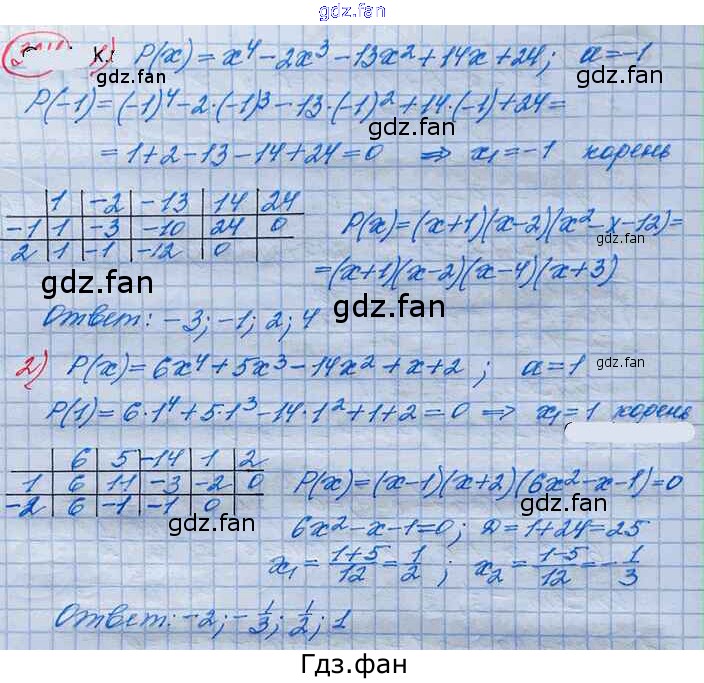 gdz.fan
К. 1) P(x) = x⁴ – 2x³ – 13x² + 14x + 24; a = –1
P(–1) = (–1)⁴ – 2·(–1)³ – 13·(–1)² + 14·(–1) + 24 =
gdz.fan gdz.fan
= 1 + 2 – 13 – 14 + 24 = 0 ⇒ x₁ = –1 корень
1 | –2 | –13 | 14 | 24
–1 | 1 | –3 | –10 | 24 | 0
2 | 1 | –1 | –12 | 0
P(x) = (x+1)(x–2)(x² – x – 12) =
gdz.fan
= (x+1)(x–2)(x–4)(x+3)
gdz.fan gdz.fan
Ответ: –3; –1; 2; 4
2) P(x) = 6x⁴ + 5x³ – 14x² + x + 2; a = 1
gdz.fan
P(1) = 6·1⁴ + 5·1³ – 14·1² + 1 + 2 = 0 ⇒ x₁ = 1 корень
6 | 5 | –14 | 1 | 2
1 | 6 | 11 | –3 | –2 | 0
–2 | 6 | –1 | –1 | 0
P(x) = (x–1)(x+2)(6x² – x – 1) = 0
gdz.fan gdz.fan
6x² – x – 1 = 0; D = 1 + 24 = 25
x₁ = (1+5)/12 = 1/2; x₂ = (1–5)/12 = –1/3
gdz.fan gdz.fan
Ответ: –2; –1/3; 1/2; 1
Гдз.фан